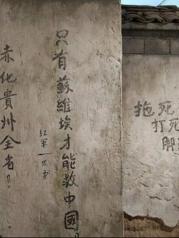 只有蘇維埃才能救中國
紅軍一
赤化貴州全省!
拖死
打死